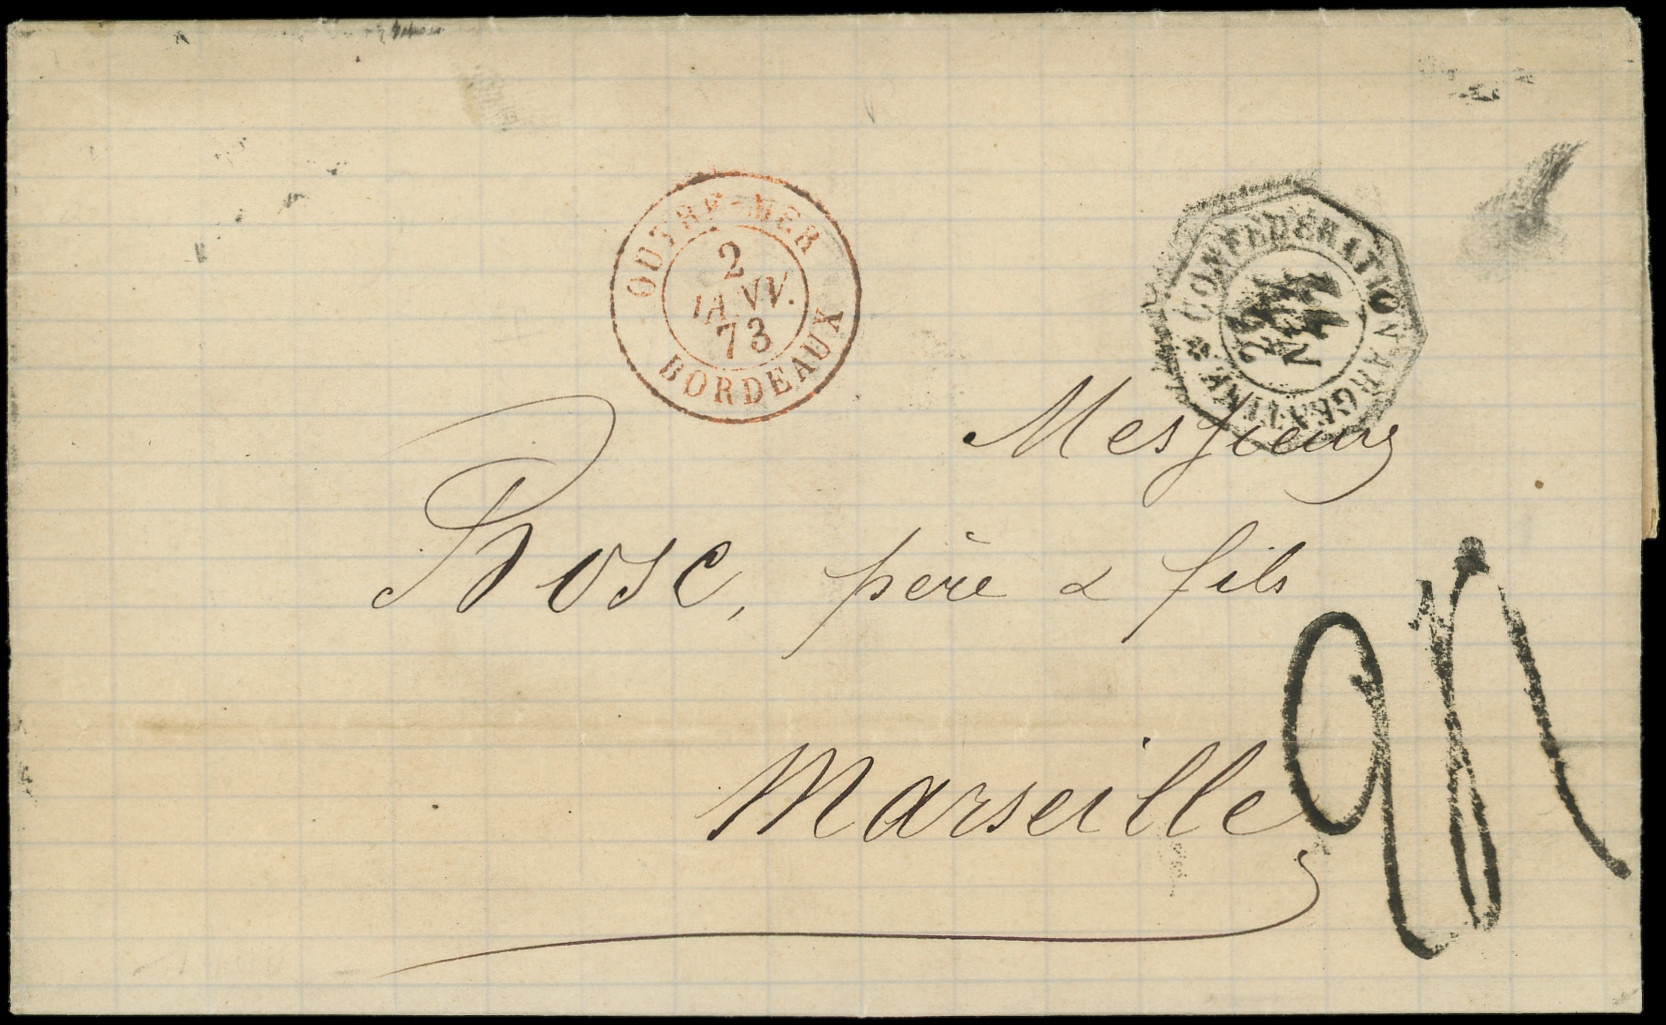 OUTRE-MER
2
JANV.
73
BORDEAUX
CONFEDERATION ARGENTINE
28
NOV
Messieurs
Bosc, père & fils
Marseille